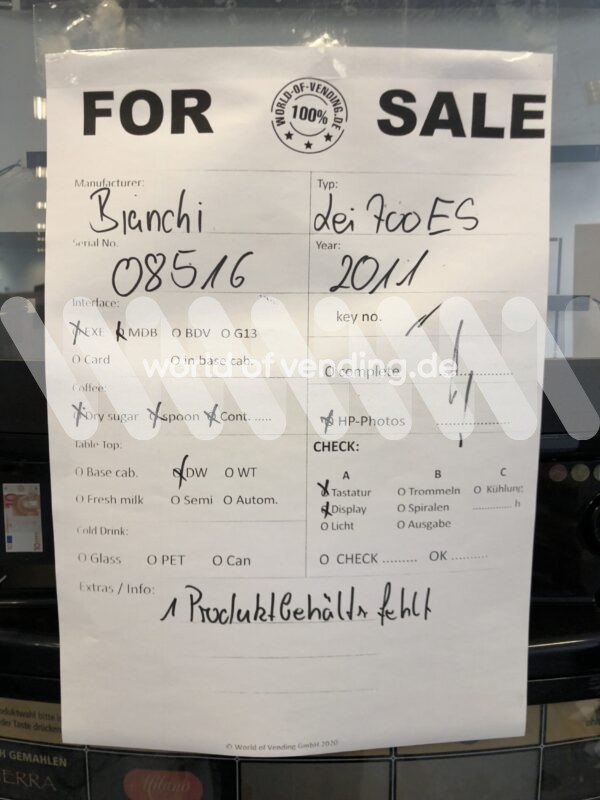 FOR SALE
WORLD-OF-VENDING.DE
100%
Manufacturer: Typ:
Bianchi Lei 700 ES
Serial No. Year:
08516 2011
Interface: key no.
EXE O MDB O BDV O G13
O Card O in base cab. O complete
world of vending.de
Coffee:
O Dry sugar O spoon O Cont. ..... O HP-Photos
Table Top: CHECK:
A B C
O Base cab. O DW O WT O Tastatur O Trommeln O Kühlung
O Fresh milk O Semi O Autom. O Display O Spiralen ............ h
O Licht O Ausgabe
Cold Drink:
O Glass O PET O Can O CHECK ......... OK ..........
Extras / Info:
1 Produktbehälter fehlt
© World of Vending GmbH 2020
H GEMAHLEN